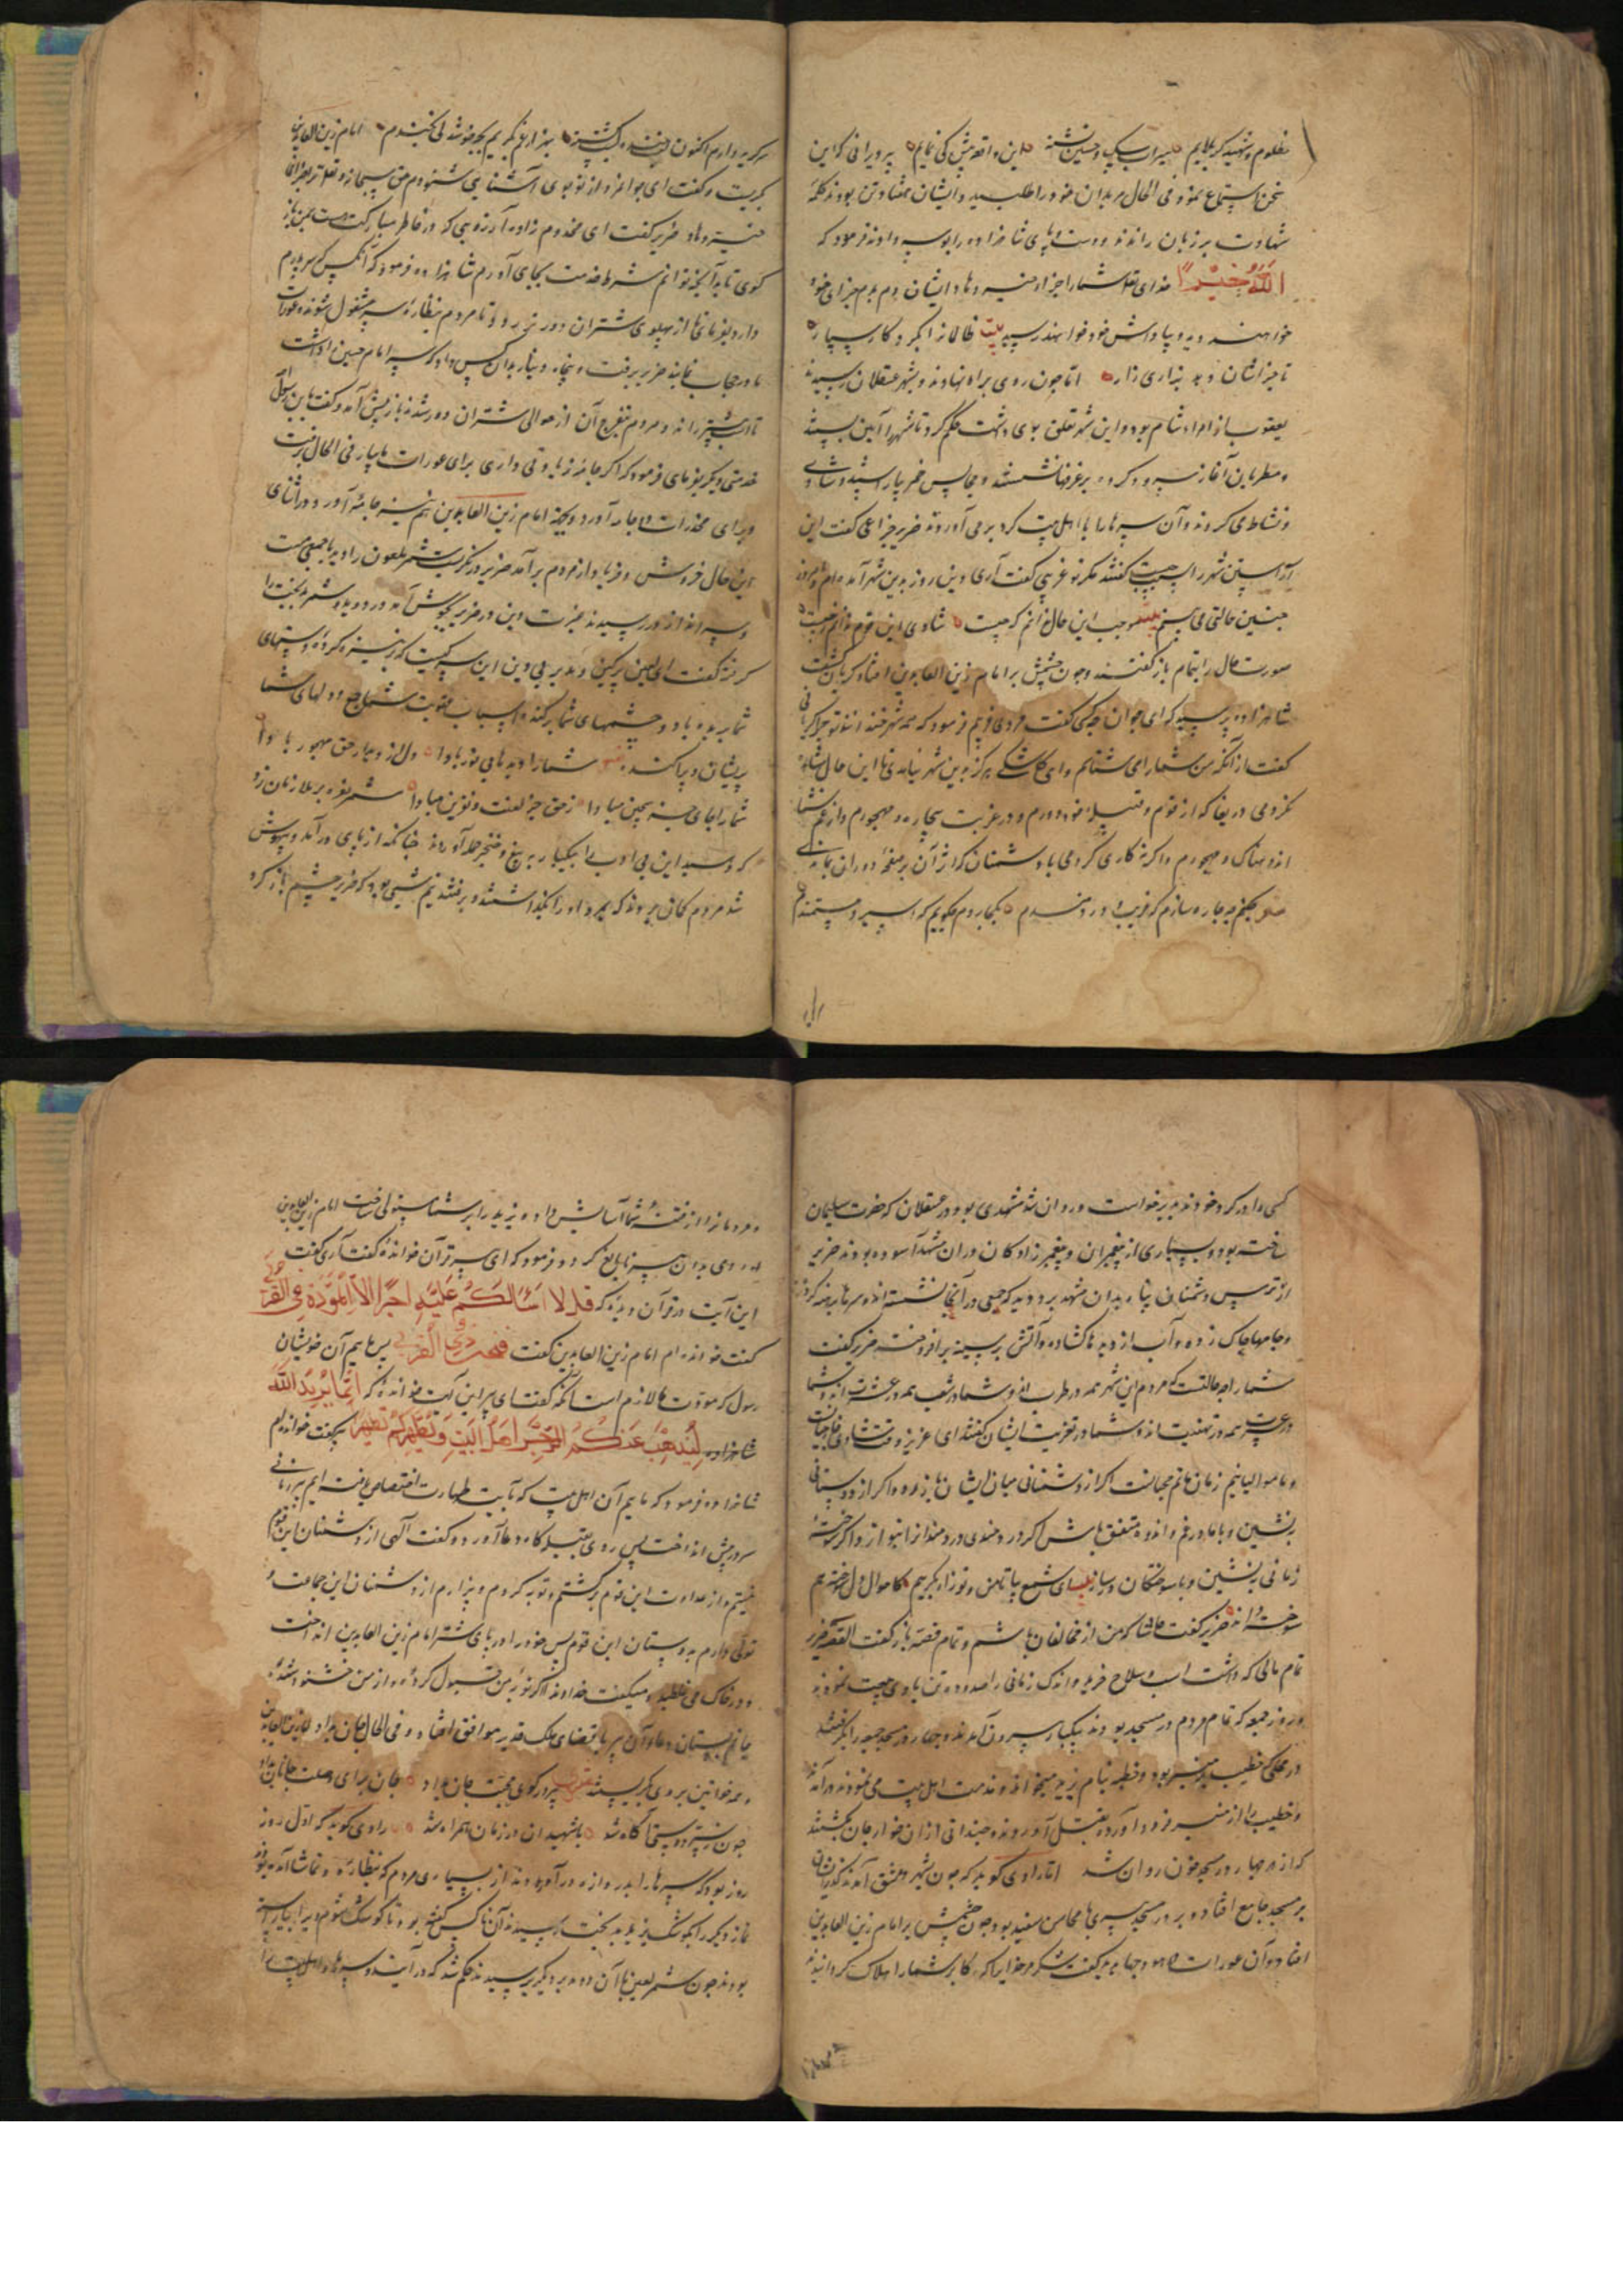 مظلوم و شهید کربلایم سیراب سپاه و حسین تشنه این واقعه پیش کی نمایم پیر ویرانی کو این
سخن استماع نمود فی الحال مریدان خود را طلبید و ایشان هفتاد تن بودند کلمهٔ
شهادت بر زبان راندند و دست و پای شاهزاده را بوسه دادند فرمود که
الله خیرا خدای تعالی شما را جزا دهد
خواهند دید و بپاداش خود خواهند رسید بیت ظالمان را بگرد کار سپار
تا جز ایشان دهد بزاری زار اما چون روی براه نهادند و بشهر عسقلان رسیدند
یعقوب از امراء شام بود و این شهر تعلق بوی داشت حکم کرد تا شهر را آیین بستند
و مطربان آغاز سرود کردند بر غرفها نشستند و مجالس خمر بیاراستند و شادی
و نشاط می کردند و آن سرها را با اهل بیت گرد بر می آوردند ضریر خزاعی گفت این
آراستن شهر را سبب چیست گفتند مگر تو غریبی گفت آری دین روز بدین شهر آمده ام و امروز
چنین حالتی می بینم بیت موجب این حال ندانم که چیست شادی این قوم ندانم ز چیست
صورت حال را بتمام باز گفتند و چون چشمش بر امام زین العابدین افتاد گریان گشت
شاهزاده پرسید که ای جوان چه کسی گفت مردی غریبم فرمود که همه شهر خندانند تو چرا گریانی
گفت از آنکه من شما را می شناسم و ای کاشکی هرگز بدین شهر نیامدی تا این حال مشاهده
نکردمی دریغا که از قوم و قبیلهٔ خود دورم و در غربت بیچاره و مهجورم و از غم شما
اندوهناک و مهجورم و اگر نه کاری کردمی با دشمنان که اثر آن بر صفحهٔ دوران بماندی
چکنم چه چاره سازم که غریب و دردمندم بکجا روم چگویم که اسیر و مستمندم
سر گریه دارم اکنون خنده گشته بهزار غم بگریم بچه خوشدلی بخندم امام زین العابدین
بگریست و گفت ای جوانمرد از تو بوی آشنایی شنودم حق سبحانه و تعالی ترا جزای
خیر دهاد ضریر گفت ای مخدوم زاده آرزویی که در خاطر مبارکت هست بمن باز
گوی تا بدآنچه توانم شرط خدمت بجای آورم شاهزاده فرمود که آنکس که سر پدرم
دارد بفرمای تا از پهلوی شتران دورتر رود تا مردم بنظارهٔ سر مشغول شوند و عورات
ما در حجاب بمانند ضریر برفت و پنجاه دینار بدان کس داد که سر امام حسین را داشت
تا اسب پیشتر راند و مردم بتفرج آن از حوالی شتران دور شدند باز پیش آمد و گفت یا بن رسول الله
خدمتی دیگر بفرمای فرمود که اگر جامهٔ زیادتی داری برای عورات ما بیار فی الحال برفت
و برای مخدرات دو جامه آورد و بجهة امام زین العابدین هم نیز جامهٔ آورد و در اثنای
این حال خروش و فریاد از مردم برآمد ضریر در نگریست شمر ملعون را دید با جمعی مست
و سراندازان در رسیدند غیرت دین در ضریر بجوش آمد و در دوید و شمر بدبخت را
گرفته گفت ای لعین پرکین و مدبر بی دین این سر کیست که بر نیزه کرده و دستهای
شما بریده باد و چشمهای شما برکنده اسباب عقوبت شما جمع و دلهای شما
پریشان و پراکنده شما را دیدها بی نور بادا دل از دیدار حق مهجور بادا
شما را جای جز سجین مبادا ز حق جز لعنت و نفرین مبادا شمر نعره بر ملازمان زد
که زنید این بی ادب را بیکبار به تیغ و خنجر حمله آوردند چنانکه از پای درآمد و بیهوش
شد مردم گمان بردند که بمرد او را بگذاشتند و برفتند نیم شبی بود که ضریر چشم باز کرد
کسی را در گرد خود ندید برخواست و روان شد مشهدی بود در عسقلان که حضرت سلیمان
ساخته بود و بسیاری از پیغمبران و پیغمبرزادگان در آن مشهد آسوده بودند ضریر
از ترس دشمنان پناه بدان مشهد برد دید که جمعی در آنجا نشسته اند و سرها برهنه کرده
و جامها چاک زده و آب از دیدها گشاده و آتش بر سینه برافروخته ضریر گفت
شما را چه حالتست که مردم این شهر همه در طرب اند و شما در شعب همه در عشرت اند و شما
در عبرت همه در تهنیت اند و شما در تعزیت ایشان گفتند ای عزیز وقت شادی خارجیانست
و ما موالیانیم زمان ماتم محبانست اگر از دشمنانی میان ایشان باز رو و اگر از دوستانی
بنشین و با ما در غم و اندوه متفق باش اگر دردمندی درد مندانرا بنواز و اگر سوخته
زمانی بنشین و با سوختگان در ساز بیت ای شمع بیا تا من و تو زار بگرییم کاحوال دل سوخته هم
سوخته داند ضریر گفت حاشا که من از مخالفان باشم و تمام قصه باز گفت القصه ضریر
تمام مالی که داشت اسب و سلاح خرید و اندک زمانی را صد و ده تن با وی بیعت نمودند
و روز جمعه که تمام مردم در مسجد بودند بیکبار بیرون آمدند و چهار در مسجد جمعه را بگرفتند
در محلی که خطیب بر منبر بود و خطبه بنام یزید میخواند و مذمت اهل بیت می نمود درآمدند
و خطیب را از منبر فرود آورده بقتل آوردند و چندانی از آن خوارجان بکشتند
که از هر چهار در مسجد خون روان شد اما راوی گوید که چون بشهر دمشق آمدند گذرشان
بر مسجد جامع افتاد و بر در مسجد پیری با محاسن سفید بود چون چشمش بر امام زین العابدین
افتاد و آن عورات گفت شکر مر خدایرا که اکابر شما را هلاک گردانید
و مردمانرا از فتنهٔ شما آسایش داد و یزید را بر شما مستولی ساخت امام زین العابدین
روی بدان پیر نابالغ کرد و فرمود که ای پیر قرآن خواندهٔ گفت آری گفت
این آیت در قرآن دیدهٔ که قل لا اسألکم علیه اجرا الا المودة فی القربی
گفت خوانده ام امام زین العابدین گفت فنحن ذوی القربی پس ماییم آن خویشان
رسول که مودت ما لازم است آنگه گفت ای پیر این آیت خواندهٔ که انما یرید الله
لیذهب عنکم الرجس اهل البیت و یطهرکم تطهیرا پیر گفت خوانده ام
شاهزاده فرمود که ماییم آن اهل بیت که بآیت طهارت اختصاص یافته ایم پیر زمانی
سر در پیش انداخت پس روی بقبله گاه دعا آورد و گفت الهی از دشمنان این قوم
نیستم و از عداوت این قوم برگشتم و توبه کردم و بیزارم از دشمنان این جماعت و
تولی دارم بدوستان این قوم پس خود را در پای شتر امام زین العابدین انداخت
و در خاک می غلطید و میگفت خداوندا اگر توبهٔ من قبول کردهٔ و از من خشنود شدهٔ
جانم بستان دعاء آن پیر باقتضای ملک قدیر موافق افتاد و فی الحال جان بداد امام زین العابدین
و همه خواتین بر وی بگریستند پیر در کوی محبت جان بداد جان برای وصلت جانان بداد
چون ز سر دوستی آگاه شد با شهیدان در زمان همراه شد راوی گوید که اول روز
روز بود که سرها را بدروازه درآوردند از بسیاری مردم که بنظاره و تماشا آمده بودند
نماز دیگر را بکوشک یزید بدبخت رسیدند آن ناکس گفته بود تا کوشک شوم ویرا بیاراسته
بودند چون شمر لعین با آن دو مدبر دیگر برسیدند حکم شد که درآیند و سرها و اهل بیت را